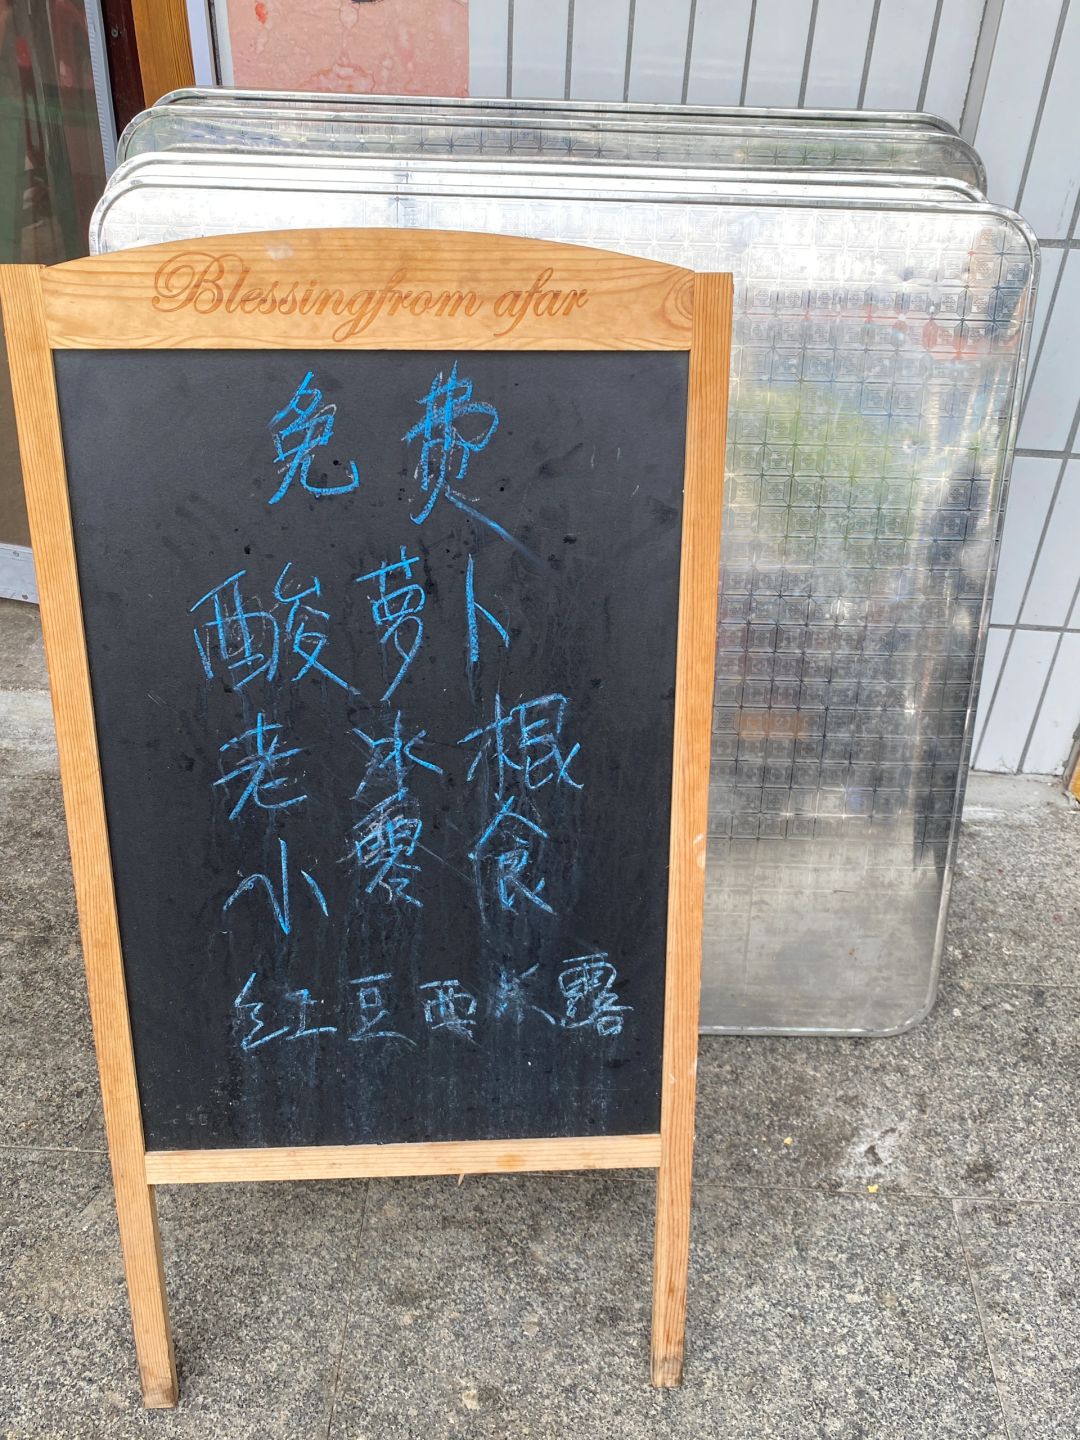 Blessingfrom afar
免费
酸萝卜
老冰棍
小零食
红豆西米露